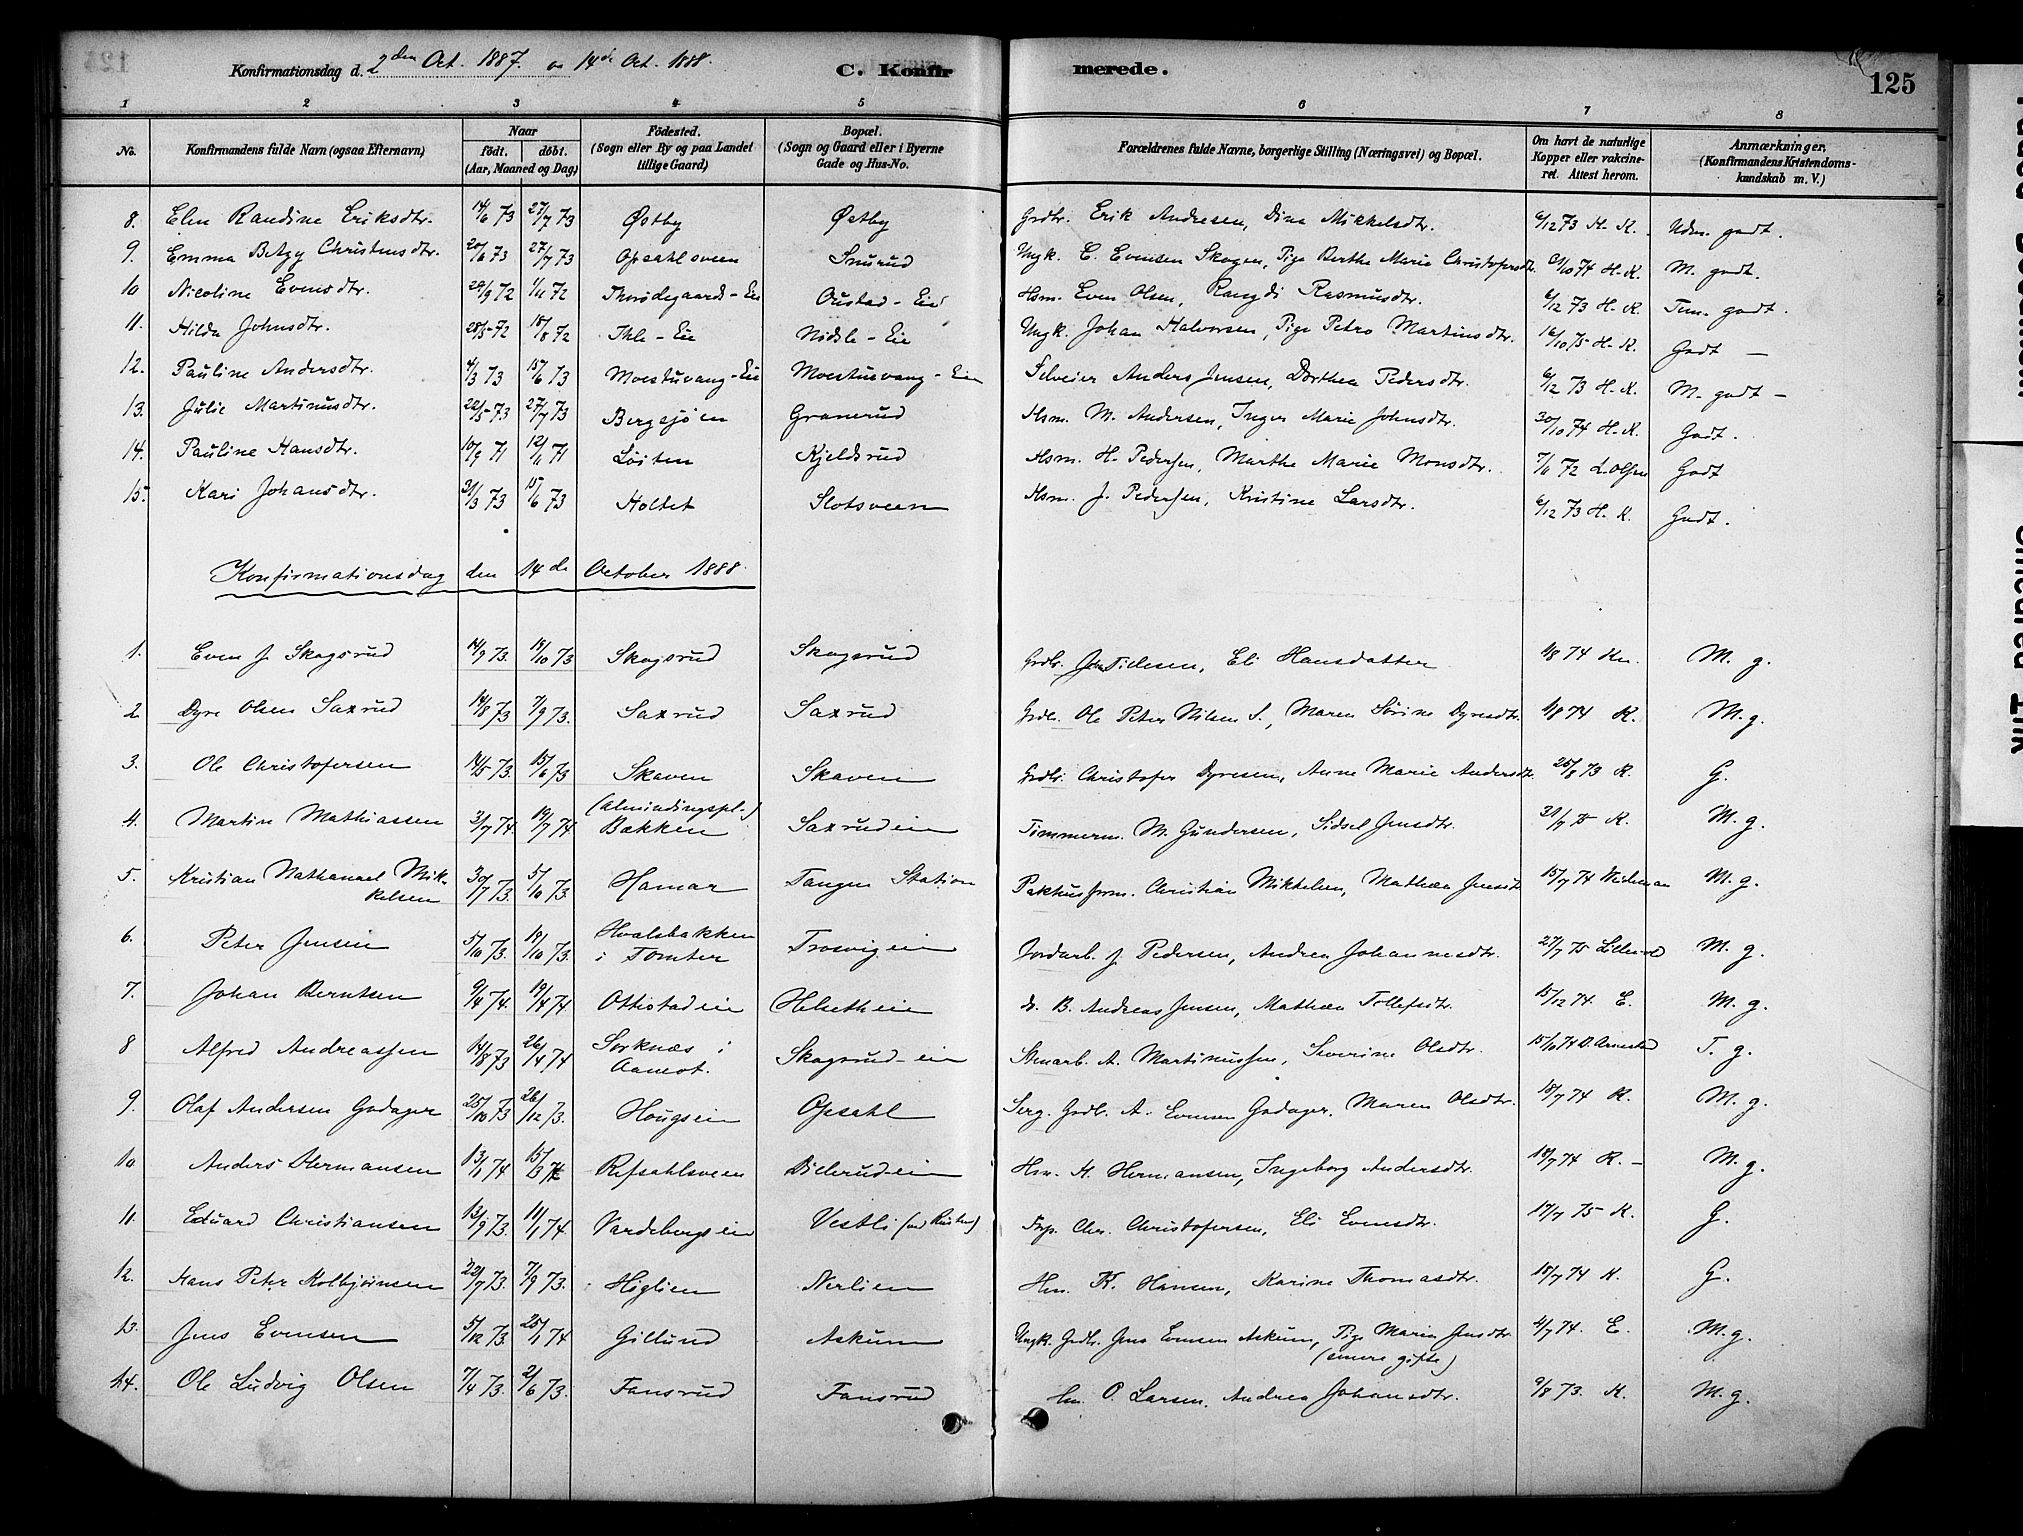 Konfirmationsdag d. 2den Oct. 1887. og 14de Oct. 1888. C. Konfirmerede. 125
1 2 3 4 5 6 7 8
No. Konfirmandens fulde Navn (ogsaa Efternavn) Naar født. døbt. (Aar, Maaned og Dag) Fødested. (Sogn eller By og paa Landet tillige Gaard) Bopæl. (Sogn og Gaard eller i Byerne Gade og Hus-No. Forældrenes fulde Navne, borgerlige Stilling (Næringsvei) og Bopæl. Om havt de naturlige Kopper eller vakcineret. Attest herom. Anmærkninger, (Konfirmandens Kristendomskundskab m. V.)
8. Elen Randine Eriksdtr. 14/6 73 27/7 73 Østby Østby Grdbr. Erik Andresen, Dina Mikkelsdtr. 6/12 73 H. K. Udm. godt.
9. Emma Betzy Christensdtr. 20/6 73 27/7 73 Opsahlsveen Snurud Ungk. E. Evensen Skogen, Pige Berthe Marie Christofersdtr. 21/10 74 H. K. M. godt.
10 Nicoline Evensdtr. 29/9 72 1/11 72 Thorødegaards-Eie Oustad-Eie Hsm. Even Olsen, Rangdi Rasmusdtr. 6/12 73 H. K. Tem. godt.
11. Hilda Johnsdtr. 28/5 72 18/8 72 Ihle-Eie Nødsle-Eie Ungk. Johan Halvorsen, Pige Petro Martinsdtr. 16/10 75 H. K. Godt —
12. Pauline Andersdtr. 4/3 73 15/6 73 Moestuvang-Eie Moestuvang-Eie Selveier Anders Jensen, Dorthea Pedersdtr. 6/12 73 H. K. M. godt —
13. Julie Martinusdtr. 22/5 73 27/7 73 Bergsjøen Granerud Hsm. M. Andersen, Inger Marie Johnsdtr. 30/10 74 H. K. Godt.
14. Pauline Hansdtr. 10/9 71 12/11 71 Løiten Kjeldsrud Hsm. H. Pedersen, Marthe Marie Monsdtr. 7/11 72 L. Olsen Godt
15. Kari Johansdtr. 21/3 73 15/6 73 Holtet Slotsveen Hsm. J. Pedersen, Kristine Larsdtr. 6/12 73 H. K. Godt.
Konfirmationsdag den 14de October 1888.
1. Even J. Skogsrud 14/9 73. 19/10 73 Skogsrud Skogsrud Grdbr. Jens Tidesen, Eli Hansdatter 1/8 74 Kn. M. g.
2. Dyre Olsen Saxrud 14/8 73 7/9 73. Saxrud Saxrud Grdbr. Ole Peter Nilsen S., Maren Sørine Dyresdtr. 1/8 74 K. M. g.
3. Ole Christofersen 14/5 73. 15/6 73 Skaven Skaven Grdbr. Christofer Dyresen, Anne Marie Andersdtr. 25/8 73 K. G.
4. Martin Mathiassen 3/7 74. 19/7 74 (Almindingspl.) Bækken Saxrudeie Tømmerm. M. Gundersen, Sidsel Jensdtr. 31/7 75 K. M. g.
5. Kristian Nathanael Mikkelsen 30/7 73. 5/10 73. Hamar Tangen Station Pakhusform. Christian Mikkelsen, Mathea Jensdtr 15/7 74 M. g.
6. Peter Jensen 5/10 73. 19/10 73. Hvalsbakken i Tomter Trosvigeie Jordarb. J. Pedersen, Andrea Johannesdtr. 27/7 75 M. g.
7. Johan Berntsen 9/4 74. 19/4 74 Ottestadeie Helsetheie do. B. Andreas Jensen, Mathea Tollefsdtr. 15/12 74. E. M. g.
8 Alfred Andreassen 14/8 73 26/4 74 Sorknæs i Aamot. Skogsrud-eie Stenarb. A. Martinussen, Severine Olsdtr. 15/10 74 T. g.
9. Olaf Andersen Godager 25/10 73 26/12 73. Hougseie Opsahl Serg. Grdb. A. Evensen Godager, Maren Olsdtr. 18/7 74 K. M. g.
10 Anders Hermansen 13/1 74 15/3 74 Refsahlsveen Bilerud-eie Hsm. H. Hermansen, Ingeborg Andersdtr. 18/7 74 K. — M. g.
11. Eduard Christiansen 13/9 73. 11/1 74. Vardebergseie Vestli Insp. Chr. Christofersen, Eli Evensdtr. 17/7 75 K. G.
12. Hans Peter Kolbjørnsen 22/7 73. 7/9 73. Høglien Nerlien Hsm. K. Hansen, Karine Thomasdtr. 18/7 74 K. G.
13. Jens Evensen 5/12 73. 25/1 74 Gillund Askum Ungk. Grdbr. Jens Evensen Askum, Pige Maria Jensdtr. (senere gifte) 4/7 74. E. M. g.
14. Ole Ludvig Olsen 7/4 73. 2/6 73. Fansrud Fansrud Hsm. O. Larsen, Andrea Johansdtr. 9/8 73. K. M. g.